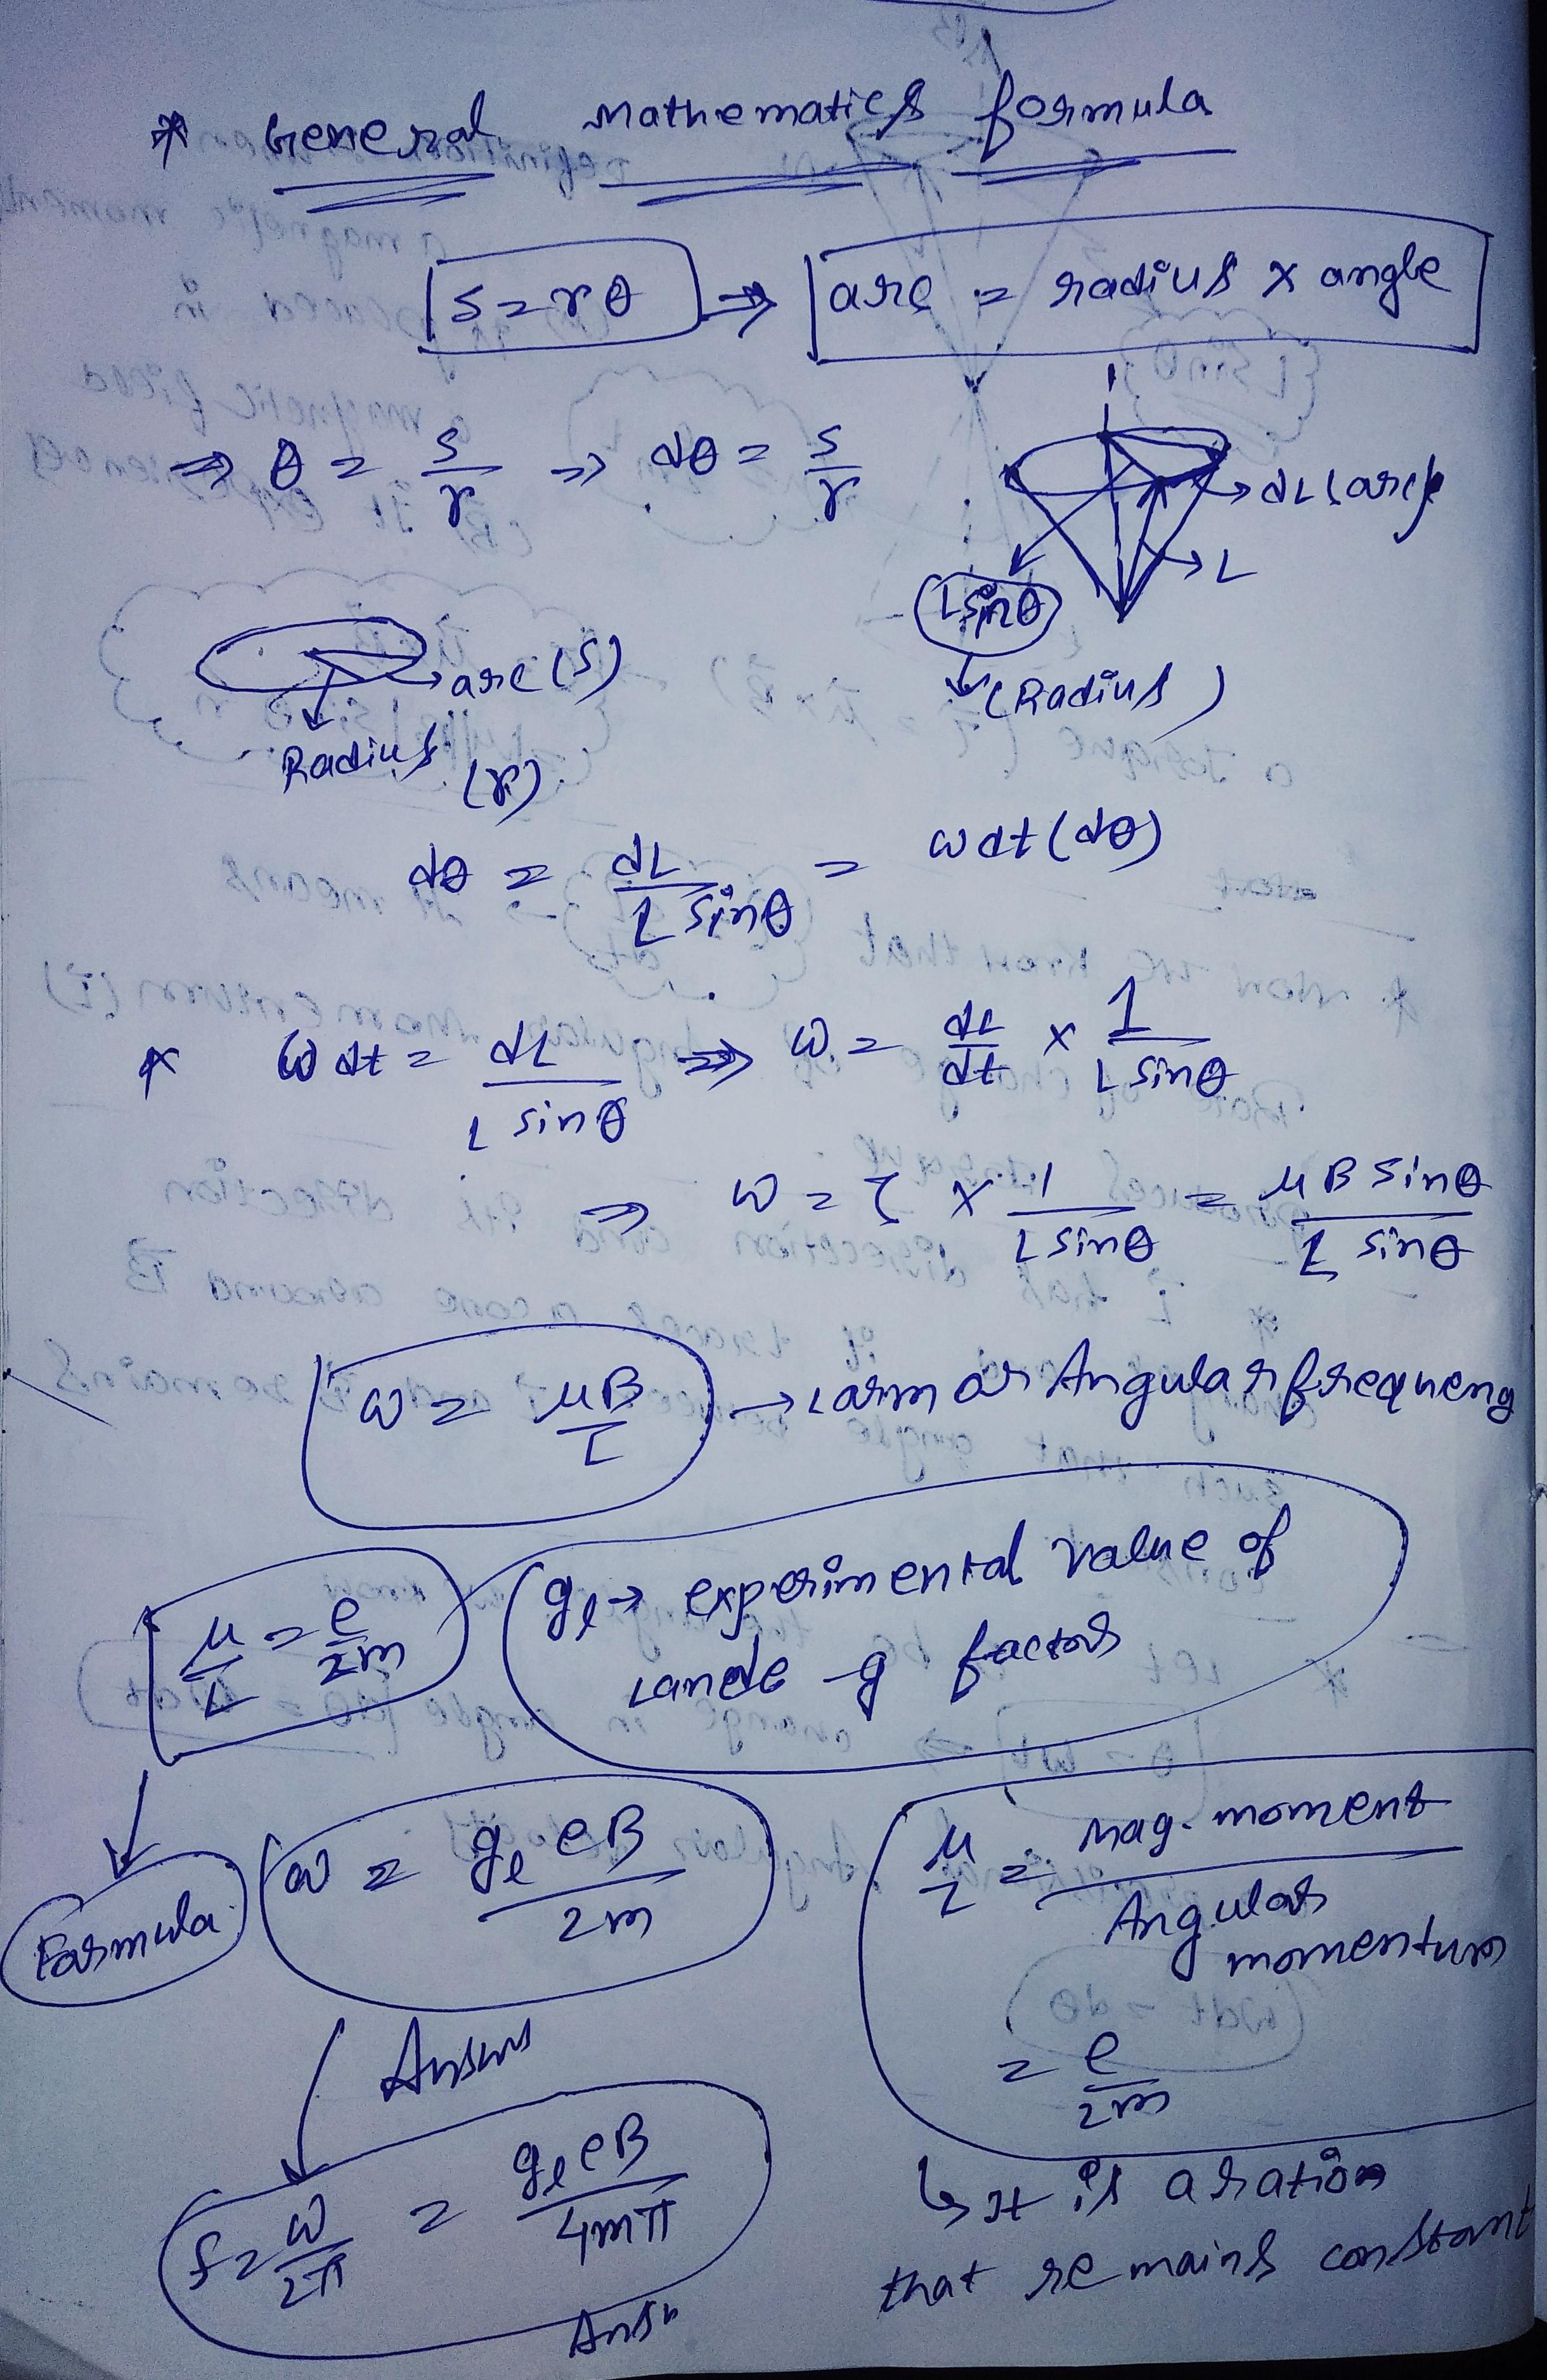 * General Mathematics formula
s = rθ ⇒ arc = radius x angle
⇒ θ = s/r ⇒ dθ = s/r
dL (arc)
L
L sinθ
(Radius)
arc (s)
Radius (r)
dθ = dL/(L sinθ) = ω dt (dθ)
* ω dt = dL/(L sinθ) ⇒ ω = dL/dt x 1/(L sinθ)
⇒ ω = τ x 1/(L sinθ) = μB sinθ/(L sinθ)
ω = μB/L → Larmor Angular frequency
μ/L = e/2m
gl → experimental value of
Lande -g factor
Formula
ω = gl eB/2m
μ/L = Mag. moment/Angular momentum
= e/2m
Answ
f = ω/2π = gl eB/4mπ
Answ
↳ It is a ration
that remains constant